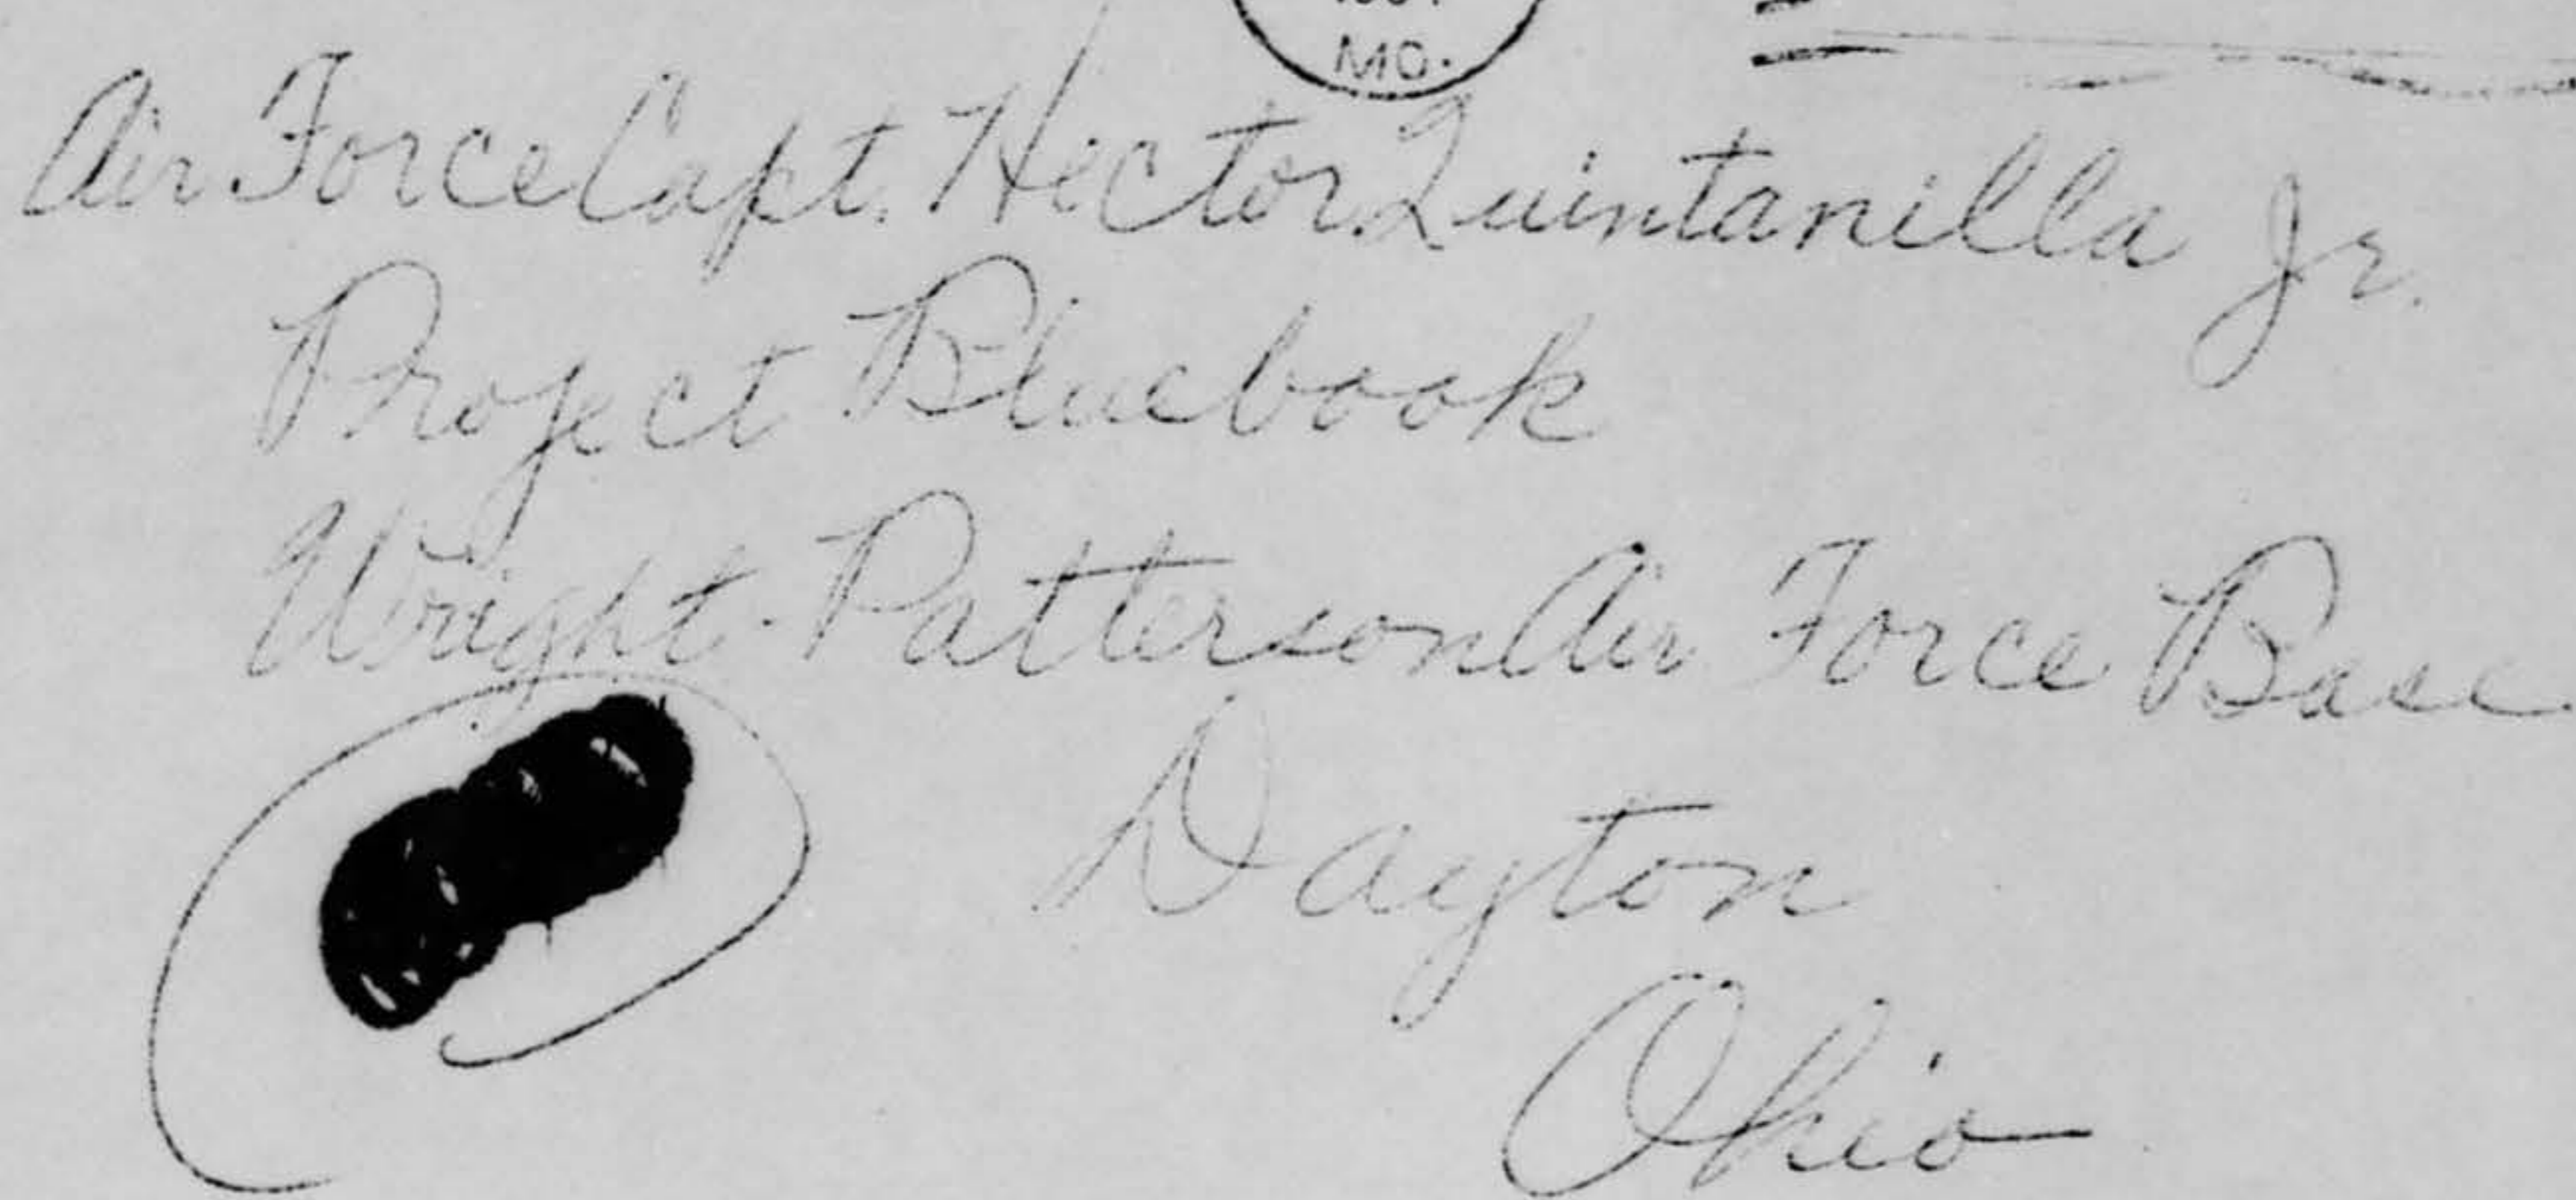 MO.
Air Force Capt. Hector Quintanilla Jr.
Project Bluebook
Wright-Patterson Air Force Base
Dayton
Ohio